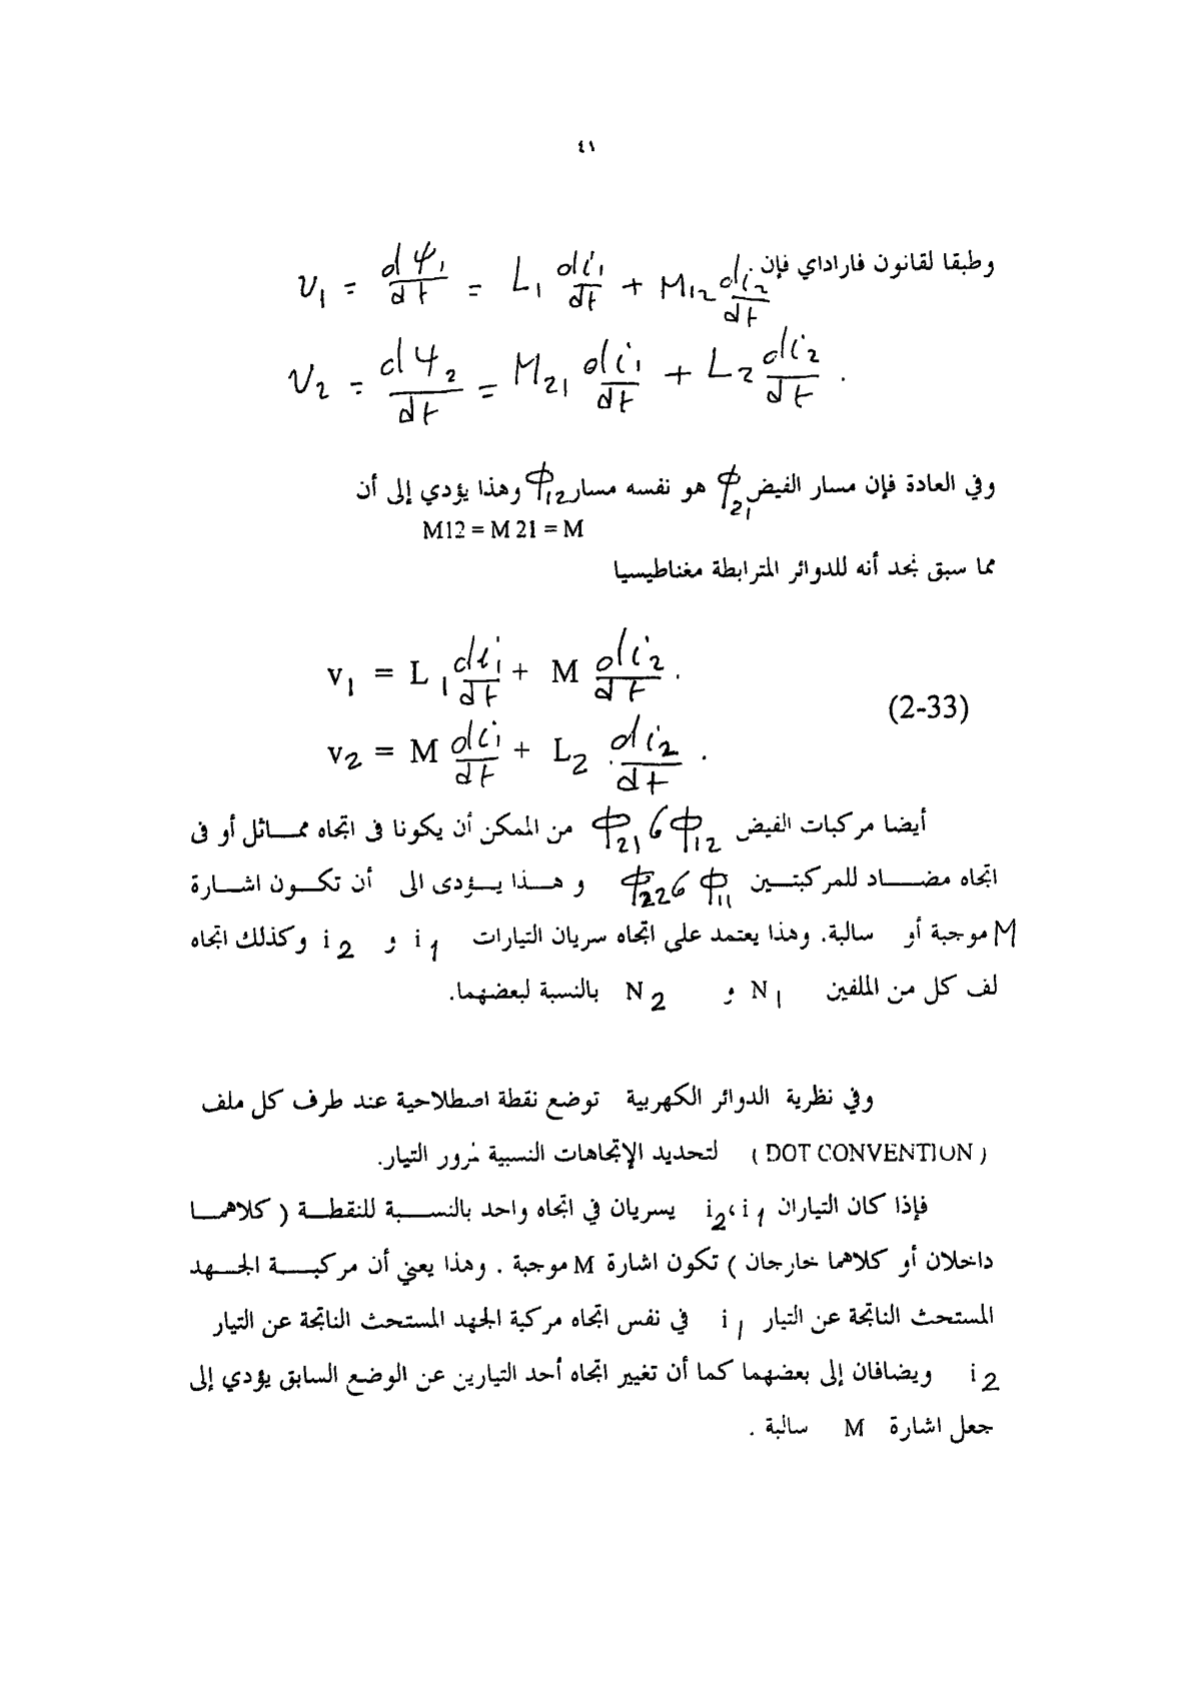 ٤١
وطبقا لقانون فاراداي فإن
v₁ = dψ₁/dt = L₁ di₁/dt + M₁₂ di₂/dt
v₂ = dψ₂/dt = M₂₁ di₁/dt + L₂ di₂/dt .
وفي العادة فإن مسار الفيض Φ₂₁ هو نفسه مسار Φ₁₂ وهذا يؤدي إلى أن
M12 = M 21 = M
مما سبق نجد أنه للدوائر المترابطة مغناطيسيا
v₁ = L₁ di₁/dt + M di₂/dt .
(2-33)
v₂ = M di₁/dt + L₂ di₂/dt .
أيضا مركبات الفيض Φ₁₂ ، Φ₂₁ من الممكن أن يكونا فى اتجاه مماثل أو فى
اتجاه مضاد للمركبتين Φ₁₁ ، Φ₂₂ و هذا يؤدى الى أن تكون اشارة
M موجبة أو سالبة. وهذا يعتمد على اتجاه سريان التيارات i₁ و i₂ وكذلك اتجاه
لف كل من الملفين N₁ و N₂ بالنسبة لبعضهما.
وفي نظرية الدوائر الكهربية توضع نقطة اصطلاحية عند طرف كل ملف
( DOT CONVENTION ) لتحديد الإتجاهات النسبية لمرور التيار.
فإذا كان التياران i₁ ، i₂ يسريان في اتجاه واحد بالنسبة للنقطة ( كلاهما
داخلان أو كلاهما خارجان ) تكون اشارة M موجبة . وهذا يعني أن مركبة الجهد
المستحث الناتجة عن التيار i₁ في نفس اتجاه مركبة الجهد المستحث الناتجة عن التيار
i₂ ويضافان إلى بعضهما كما أن تغيير اتجاه أحد التيارين عن الوضع السابق يؤدي إلى
جعل اشارة M سالبة .